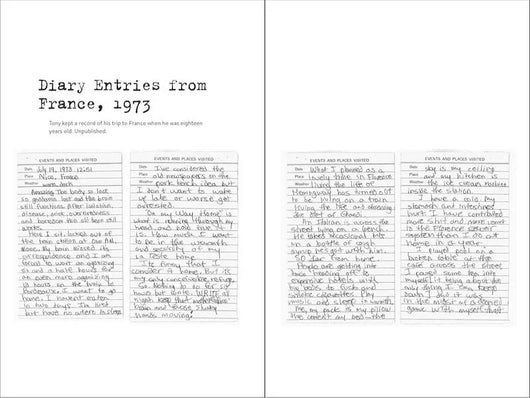 Diary Entries from
France, 1973
Tony kept a record of his trip to France when he was eighteen
years old. Unpublished.
EVENTS AND PLACES VISITED
Date July 19, 1973 12:01
Place Nice, France
Weather
Amazing The body so lost
so goddamn lost and the brain
still functions. After
disease,
and the body still
works.
Here I sit, locked out of
the train station at one A.M.
Nice. My brain missed its
correspondence and I am
forced to wait an agonizing
six and a half hours for
an even more agonizing
13 hours on the train to
Bordeaux. I want to go
home. I haven't eaten
in two days. I'm beat
but have no where to sleep
EVENTS AND PLACES VISITED
I've considered the
old newspapers on the
park bench idea but
I don't want to wake
up late or worse get
arrested.
"On my Way Home" is
what is running through my
head, and how true it
is. How much I want
to be in the warmth
and security of my
La Teste home.
It's funny that I
consider it home, but it's
my only conceivable refuge.
So, nothing to do for six
hours but write. Write all
night. Keep that
brain and those
hands moving
EVENTS AND PLACES VISITED
What I planned as a
lovely time in Florence
living the life of
Hemingway has turned out
to be living on a train
living the life
the diet of Ghandi.
An Italian is across the
street lying on a bench.
He takes occasional bits
on a bottle of rough
he's got with him.
So far from home.
People are getting into
taxis heading off to
expensive hotels with
big beds to fuck and
smoke cigarettes. Play
music and sleep is warmth
Me, my pack is my pillow
the cement my bed—the
EVENTS AND PLACES VISITED
sky is my ceiling
and my kitchen is
the ice cream machine
inside the station.
I have a cold, my
stomach and intestines
hurt. I have contributed
more shit and
to the Florence sewer
system than I do at
home in a year.
I played pool on a
broken table at the
cafe across the street
I played some
myself it being about the
only thing I can keep
down
in the midst of a
game with myself that